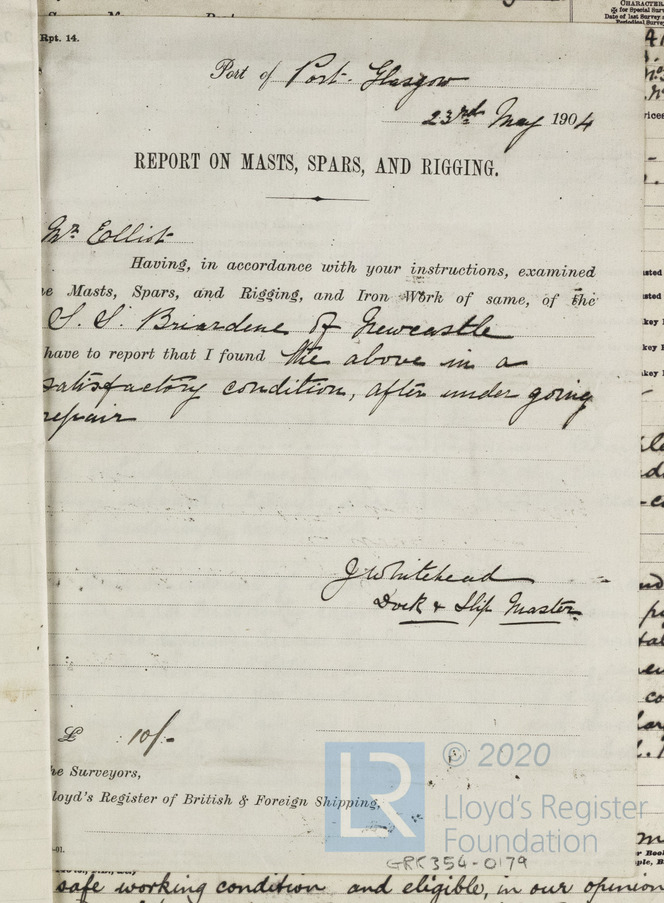 CHARACTER
for Special Surv
Date of last Survey
Periodical Survey
Rpt. 14.
Port of Port-Glasgow
23rd May 1904
REPORT ON MASTS, SPARS, AND RIGGING.
Mr Elliot
Having, in accordance with your instructions, examined
e Masts, Spars, and Rigging, and Iron Work of same, of the
S. S. Briardene of Newcastle
have to report that I found the above in a
satisfactory condition, after under going
repair
J Whitehead
Dock & Slip Master
£ : 10/-
he Surveyors,
loyd's Register of British & Foreign Shipping,
-01.
LR © 2020
Lloyd's Register
Foundation
GRK354-0179
safe working condition and eligible, in our opinion